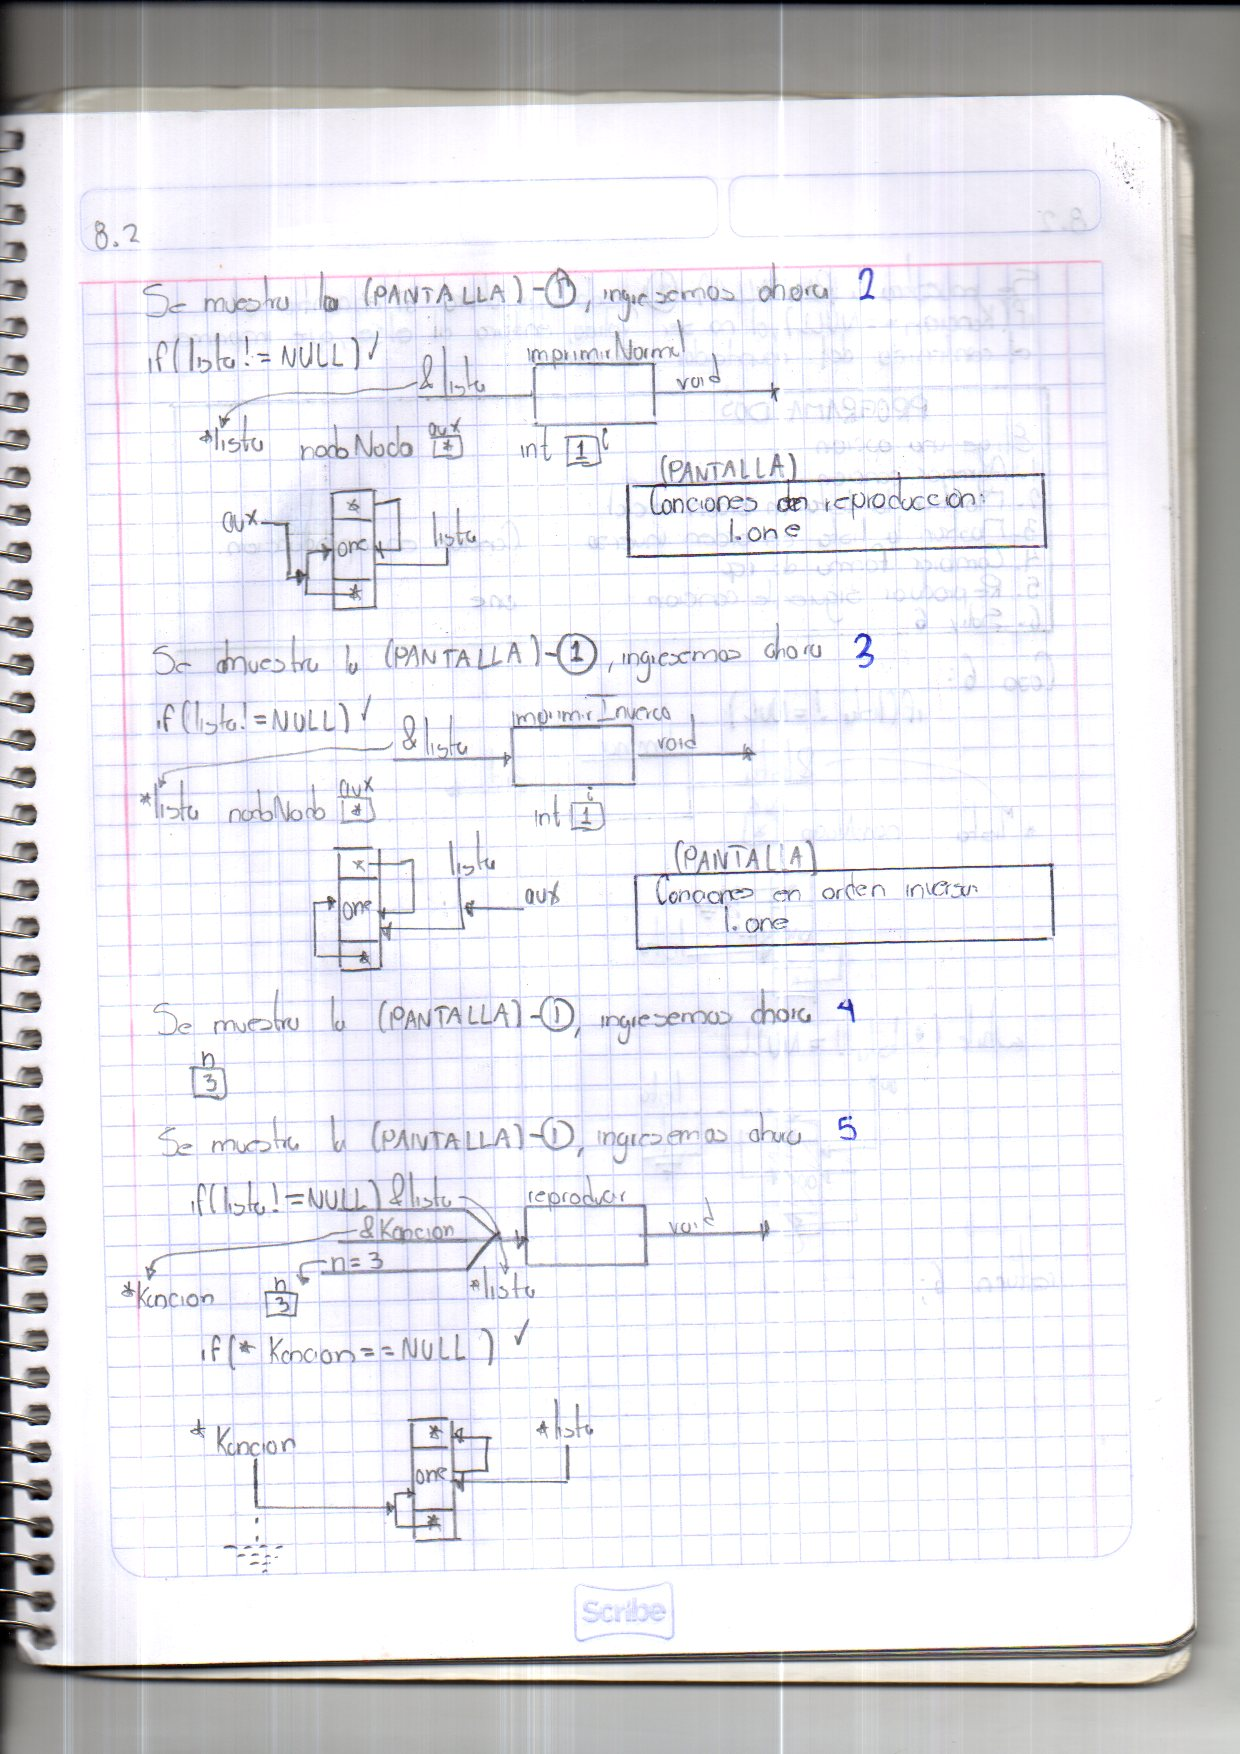 8.2
Se muestra la (PANTALLA)-①, ingresemos ahora 2
if(lista!=NULL)✓
imprimirNormal
&lista
void
*lista nodoNodo aux *
int 1 i
(PANTALLA)
Canciones en reproducción:
1. one
aux
*
one
*
lista
Se muestra la (PANTALLA)-①, ingresemos ahora 3
if(lista!=NULL)✓
imprimirInverso
&lista
void
*lista nodoNodo aux *
int 1 i
(PANTALLA)
Canciones en orden inverso:
1. one
*
one
*
lista
aux
Se muestra la (PANTALLA)-①, ingresemos ahora 4
n
3
Se muestra la (PANTALLA)-①, ingresemos ahora 5
if(lista!=NULL) &lista
reproducir
&Kancion
void
n=3
*Kancion
n
3
*lista
if(*Kancion==NULL) ✓
*Kancion
*
one
*
*lista
Scribe